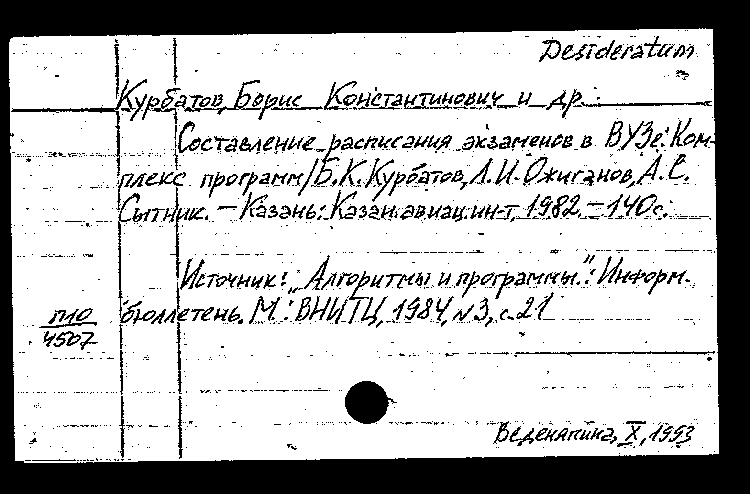 Desideratum
Курбатов, Борис Константинович и др.
Составление расписания экзаменов в ВУЗе: Ком-
плекс программ/Б.К.Курбатов, Л.И.Ожиганов, А.С.
Сытник. – Казань: Казан.авиац.ин-т, 1982. – 140с.
Источник: „Алгоритмы и программы.": Информ.
бюллетень. М.: ВНИТЦ, 1984, №3, с.21
4507
Веденяпина, X, 1993